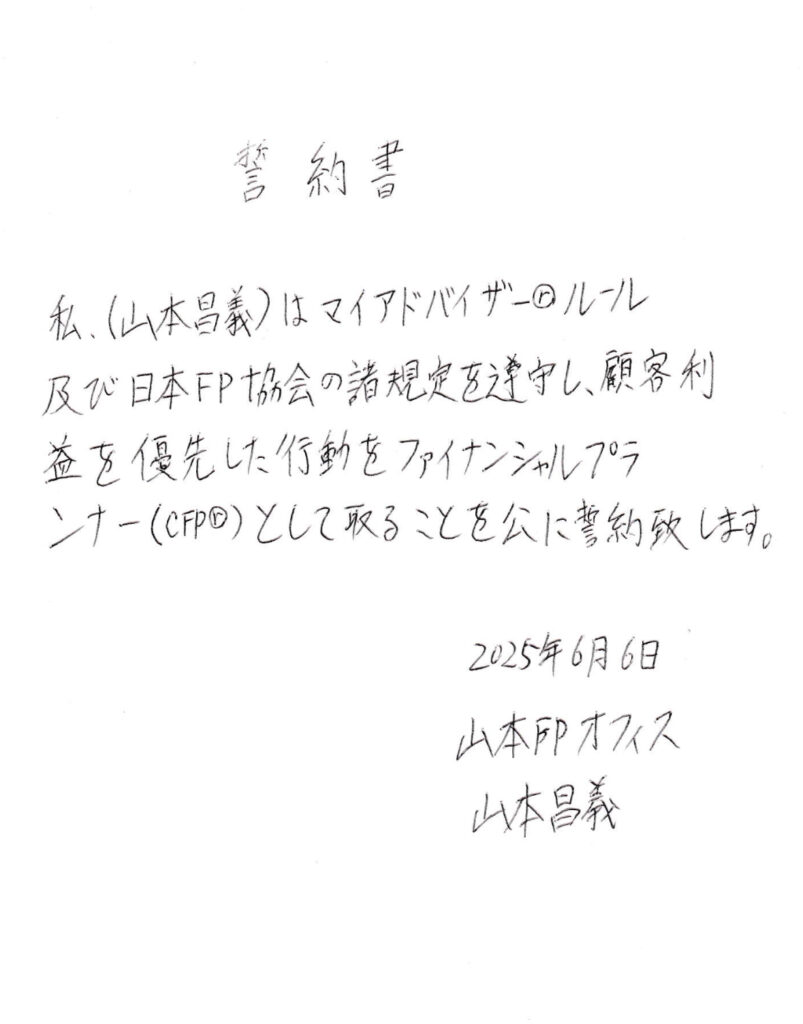 誓約書
私、(山本昌義)はマイアドバイザー®ルール
及び日本FP協会の諸規定を遵守し、顧客利
益を優先した行動をファイナンシャルプラ
ンナー(CFP®)として取ることを公に誓約致します。
2025年6月6日
山本FPオフィス
山本昌義